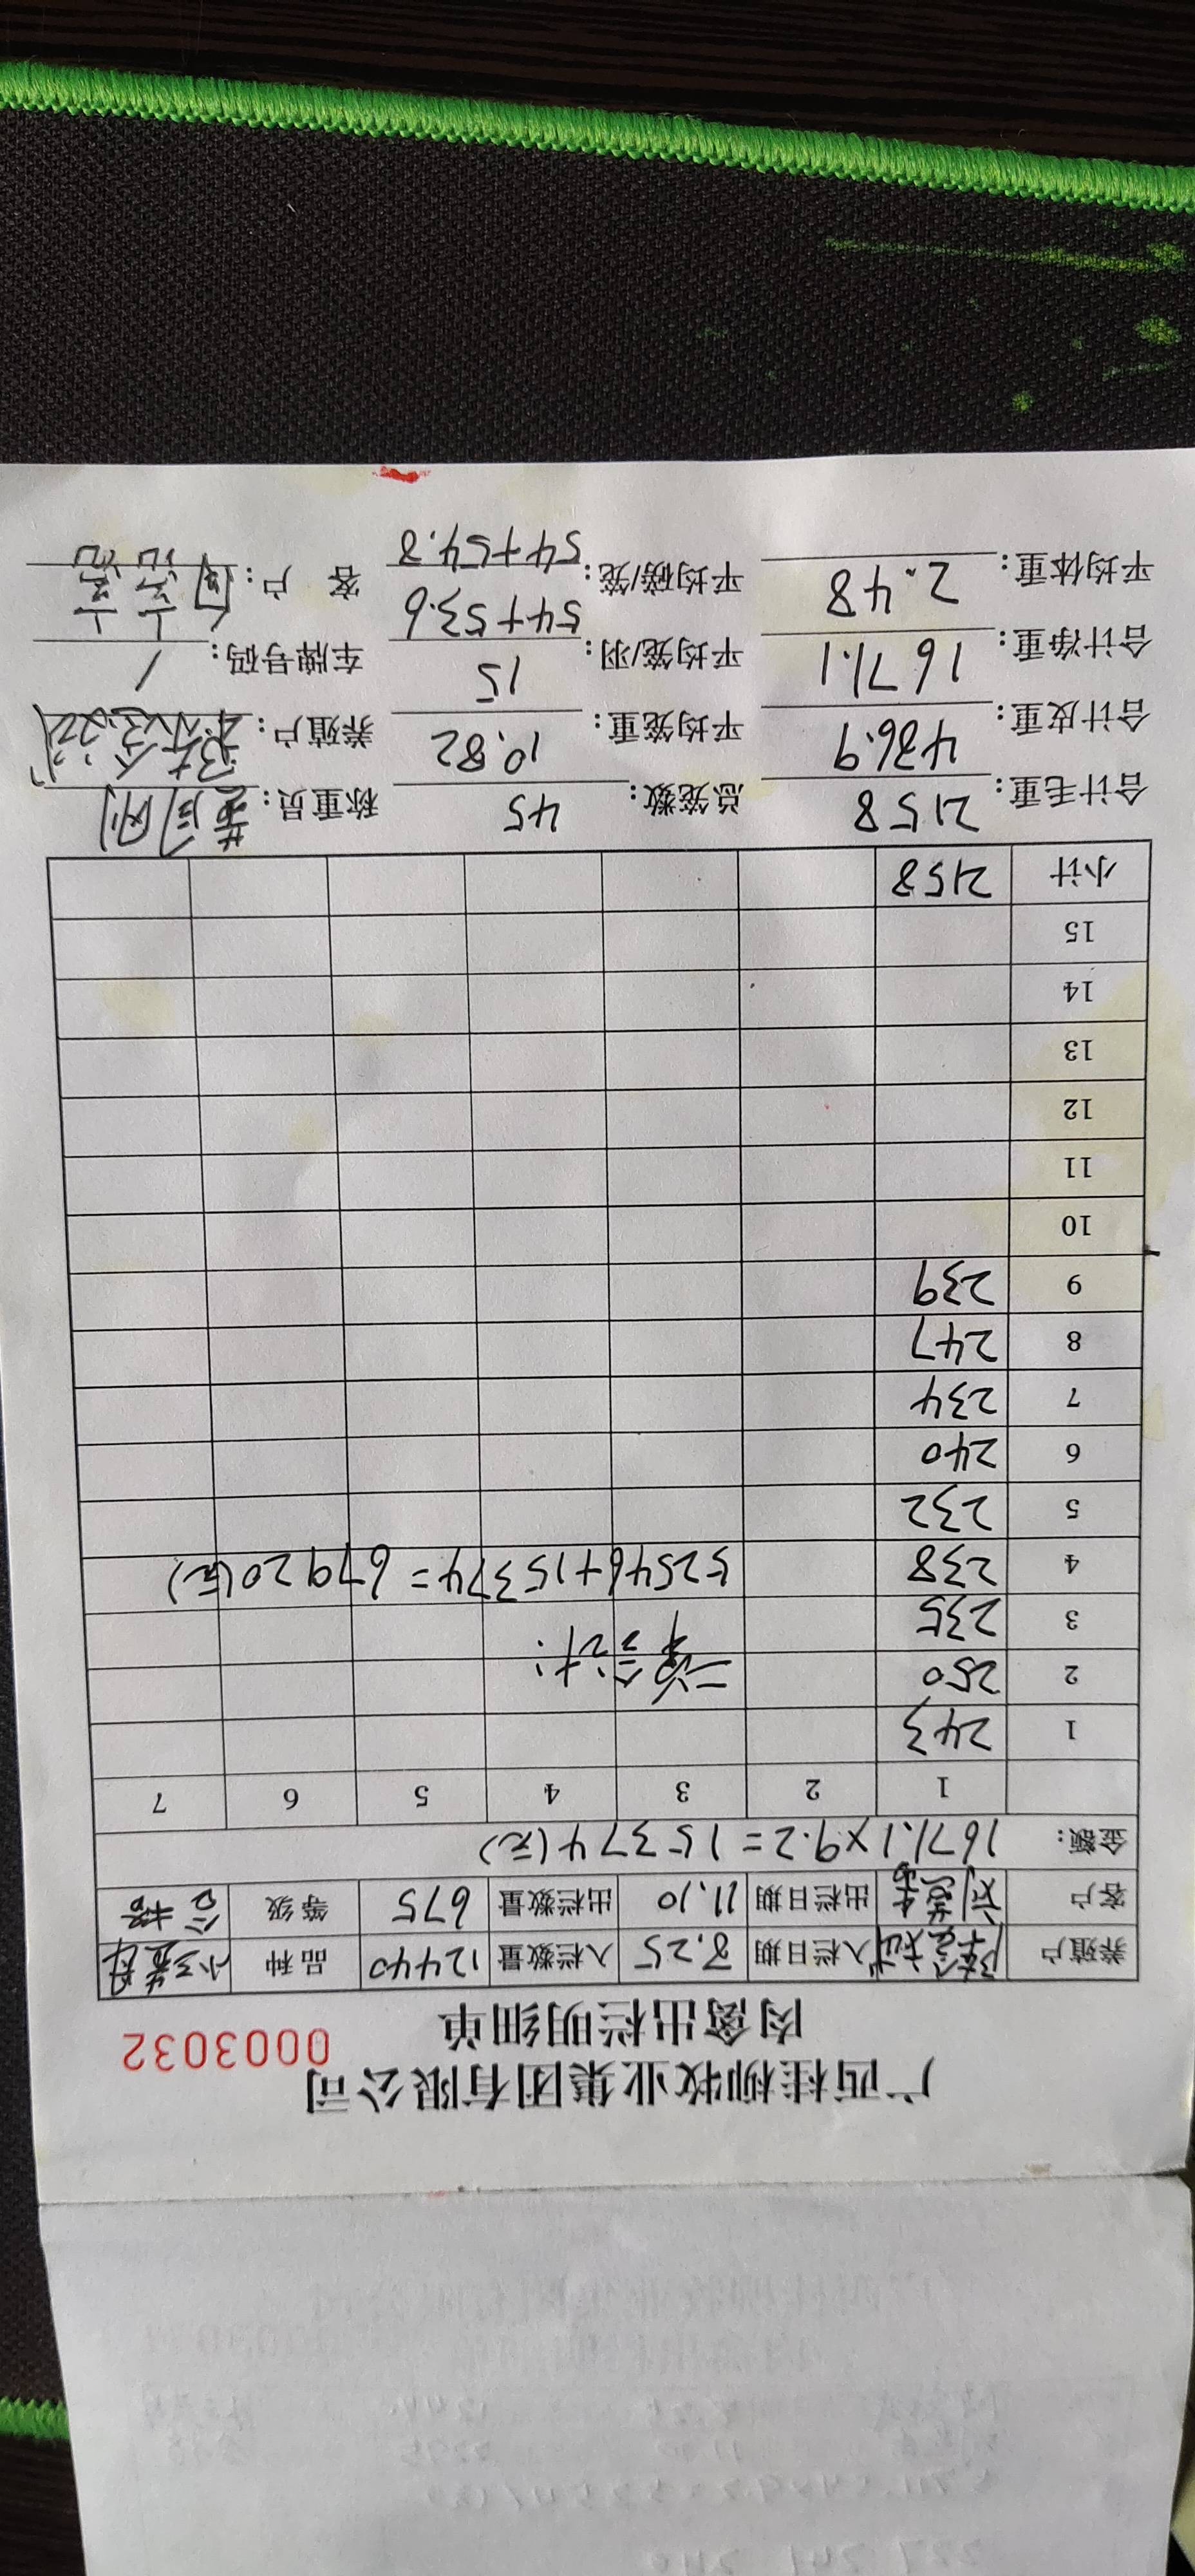 广西桂柳牧业集团有限公司
肉禽出栏明细单
0003032
养殖户 入栏日期 8.25 入栏数量 12440 品种
客户 出栏日期 11.10 出栏数量 675 等级 合格
金额: 1671.1×9.2=15374(元)
1 2 3 4 5 6 7
1 243
2 250 二单合计:
3 235
4 238 52546+15374=67920(元)
5 232
6 240
7 234
8 247
9 239
10
11
12
13
14
15
小计 2158
合计毛重: 2158 总笼数: 45 称重员:
合计皮重: 486.9 平均笼重: 10.82 养殖户:
合计净重: 1671.1 平均笼/羽: 15 车牌号码: /
54+53.6
平均体重: 2.48 平均磅/笼: 客 户:
54+54.8